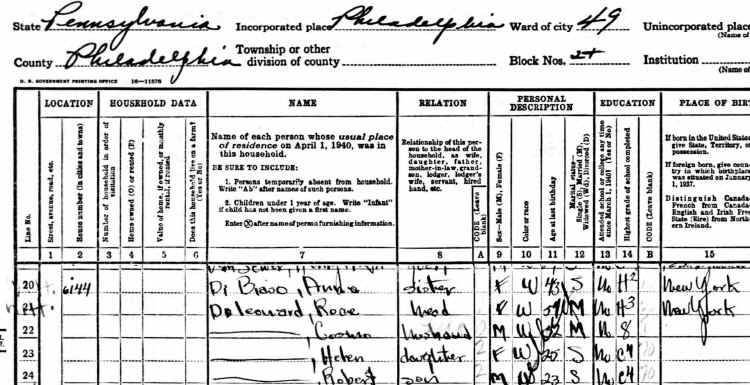 State Pennsylvania Incorporated place Philadelphia Ward of city 49 Unincorporated place
(Name of
County Philadelphia Township or other division of county Block Nos. 24 Institution
(Name of
U. S. GOVERNMENT PRINTING OFFICE 16—11576
LOCATION HOUSEHOLD DATA NAME RELATION PERSONAL DESCRIPTION EDUCATION PLACE OF BIR
Line No.
Street, avenue, road, etc.
House number (in cities and towns)
Number of household in order of visitation
Home owned (O) or rented (R)
Value of home, if owned, or monthly rental, if rented
Does this household live on a farm? (Yes or No)
Name of each person whose usual place
of residence on April 1, 1940, was in
this household.
BE SURE TO INCLUDE:
1. Persons temporarily absent from household.
Write "Ab" after names of such persons.
2. Children under 1 year of age. Write "Infant"
if child has not been given a first name.
Enter ⓧ after name of person furnishing information.
Relationship of this per-
son to the head of the
household, as wife,
daughter, father,
mother-in-law, grand-
son, lodger, lodger's
wife, servant, hired
hand, etc.
CODE (Leave blank)
Sex—Male (M), Female (F)
Color or race
Age at last birthday
Marital status—
Single (S), Married (M),
Widowed (Wd), Divorced (D)
Attended school or college any time
since March 1, 1940? (Yes or No)
Highest grade of school completed
CODE (Leave blank)
If born in the United States
give State, Territory, or
possession.
If foreign born, give coun-
try in which birthplace
was situated on January
1, 1937.
Distinguish Canada-
French from Canada-
English and Irish Free
State (Eire) from North-
ern Ireland.
1 2 3 4 5 6 7 8 A 9 10 11 12 13 14 B 15
20 6144 Di Biaso, Anna sister F W 43 S No H2 New York
Deleonard, Rose head F W M No H3 New York
22 husband M W 52 M No 8
23 , Helen daughter F W 25 S No C4
24 , Robert son M W 23 S No C4